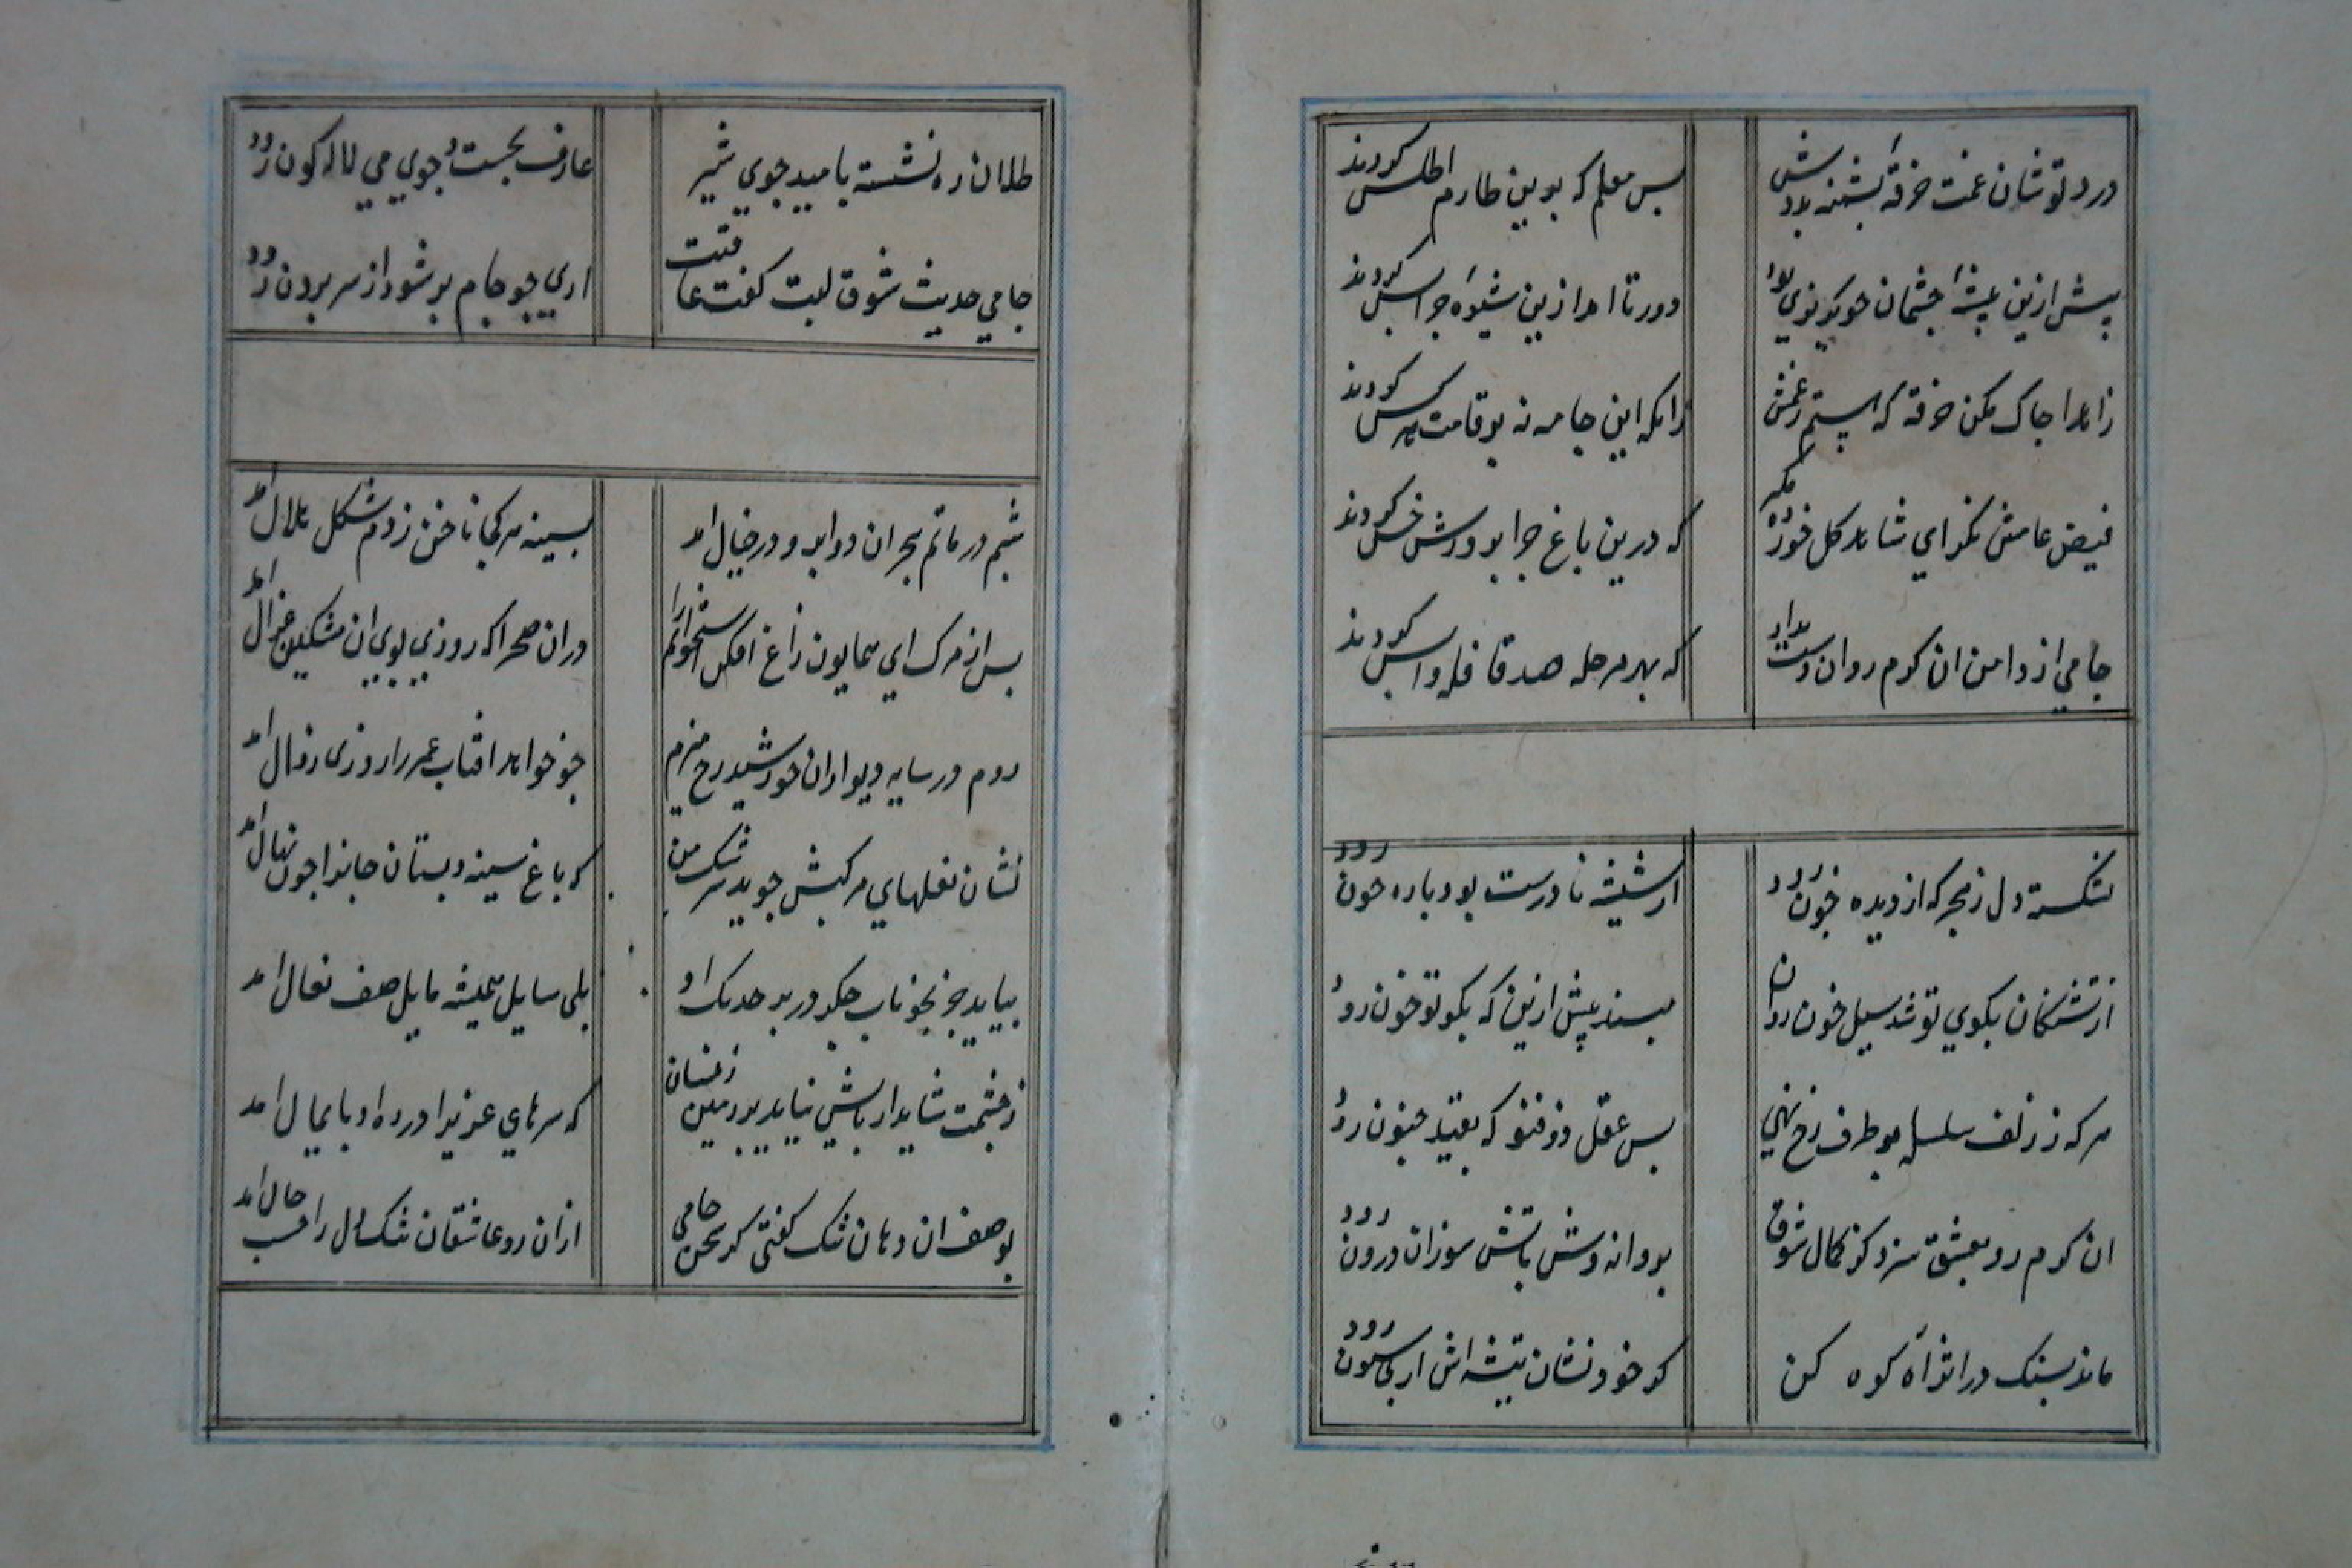 درد نوشان غمت خرقه پشمینه بدوش بس معلم که برین طارم اطلس کردند
پیش ازین پیشه چشمان تو بد نوری دور تا امد ازین شیوه چرا بس کردند
زاهدا چاک مکن خرقه که پستم زغمش زانکه این جامه نه بر قامت هر کس کردند
فیض عامش نکر ای شاهد کل خورده مکیر که درین باغ چرا پرورش خس کردند
جامی از دامن ان کرم روان دست مدار که بهر مرحله صد قافله واپس کردند
بشکسته دل ز هجر که از دیده خون رود از شیشه نا درست بود باده چون رود
از تشنکان بکوی تو شد سیل خون روان مپسند پیش ازین که بکو تو خون رود
هر که ز زلف سلسله بر طرف رخ نهی بس عقل ذو فنون که بقید جنون رود
ان کرم رو بعشق سزد کز کمال شوق پروانه وش باتش سوزان درون رود
ماند بسنک در اثر آه کوه کن کر خود نشان تیشه اش از بی ستون رود
طفلان ره نشسته بامید جوی شیر عارف بجست و جوی می لاله کون رود
جامی حدیث شوق لبت کفت عاقبت اری چو جام پر شود از سر برون رود
شبم در ماتم هجران دو ابرو در خیال امد بسینه هر کجا ناخن زدم شکل هلال امد
پس از مرک ای همایون زاغ افکن استخوانم را دران صحرا که روزی بوی ان مشکین غزال امد
روم در سایه دیوار ان خورشید رخ میرم چو خواهد افتاب عمر را روزی زوال امد
نشان نعلهای مرکبش جوید سرشک من که باغ سینه و بستان جانرا چون نهال امد
بیاید جز بخوناب جکر در بر خدنک او بلی سایل همیشه مایل صف نعال امد
زخشمت شاید ار باش نیاید بر زمین زینسان که سرهای عزیزا در ره او پایمال امد
بوصف ان دهان تنک کفتی کر سخن جامی ازان رو عاشقان تنک دل را حسب حال امد